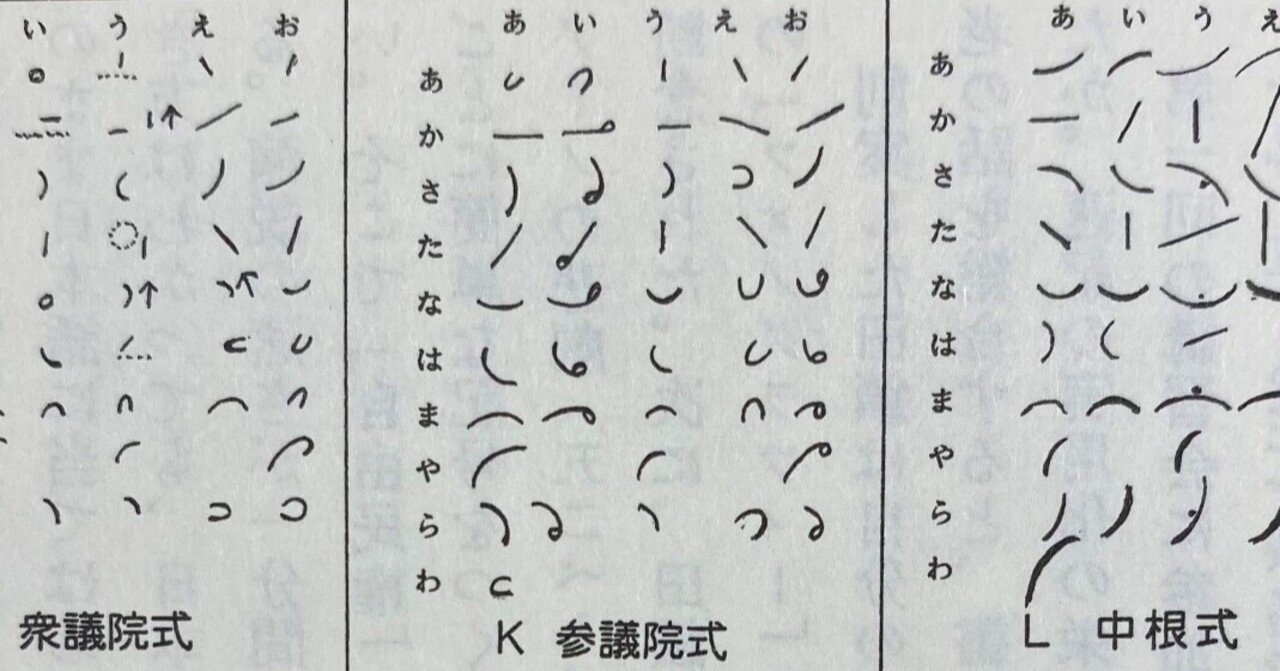 い う え お
衆議院式
あ い う え お
あ
か
さ
た
な
は
ま
や
ら
わ
K 参議院式
あ い う え
あ
か
さ
た
な
は
ま
や
ら
わ
L 中根式